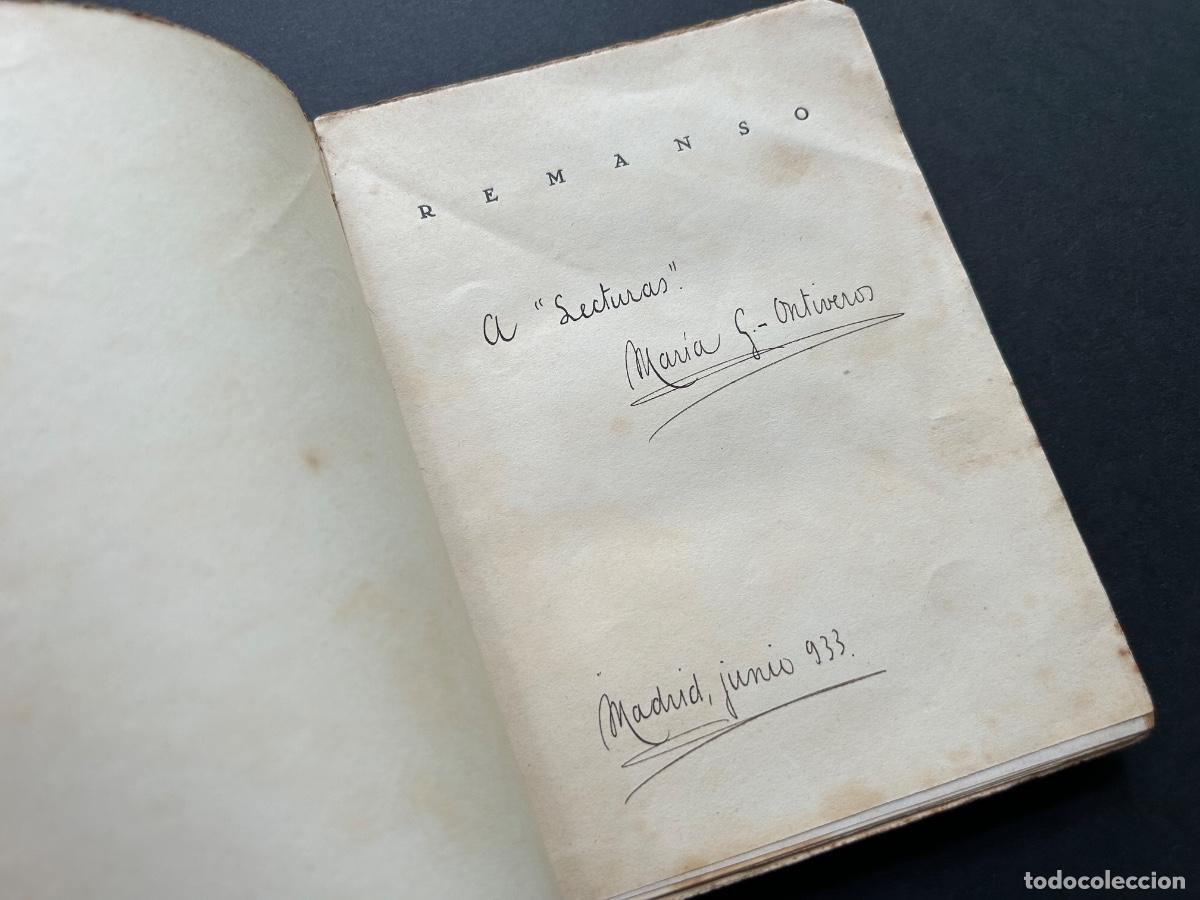 REMANSO
A "Lecturas".
María G.-Ontiveros
Madrid, junio 933.
todocoleccion